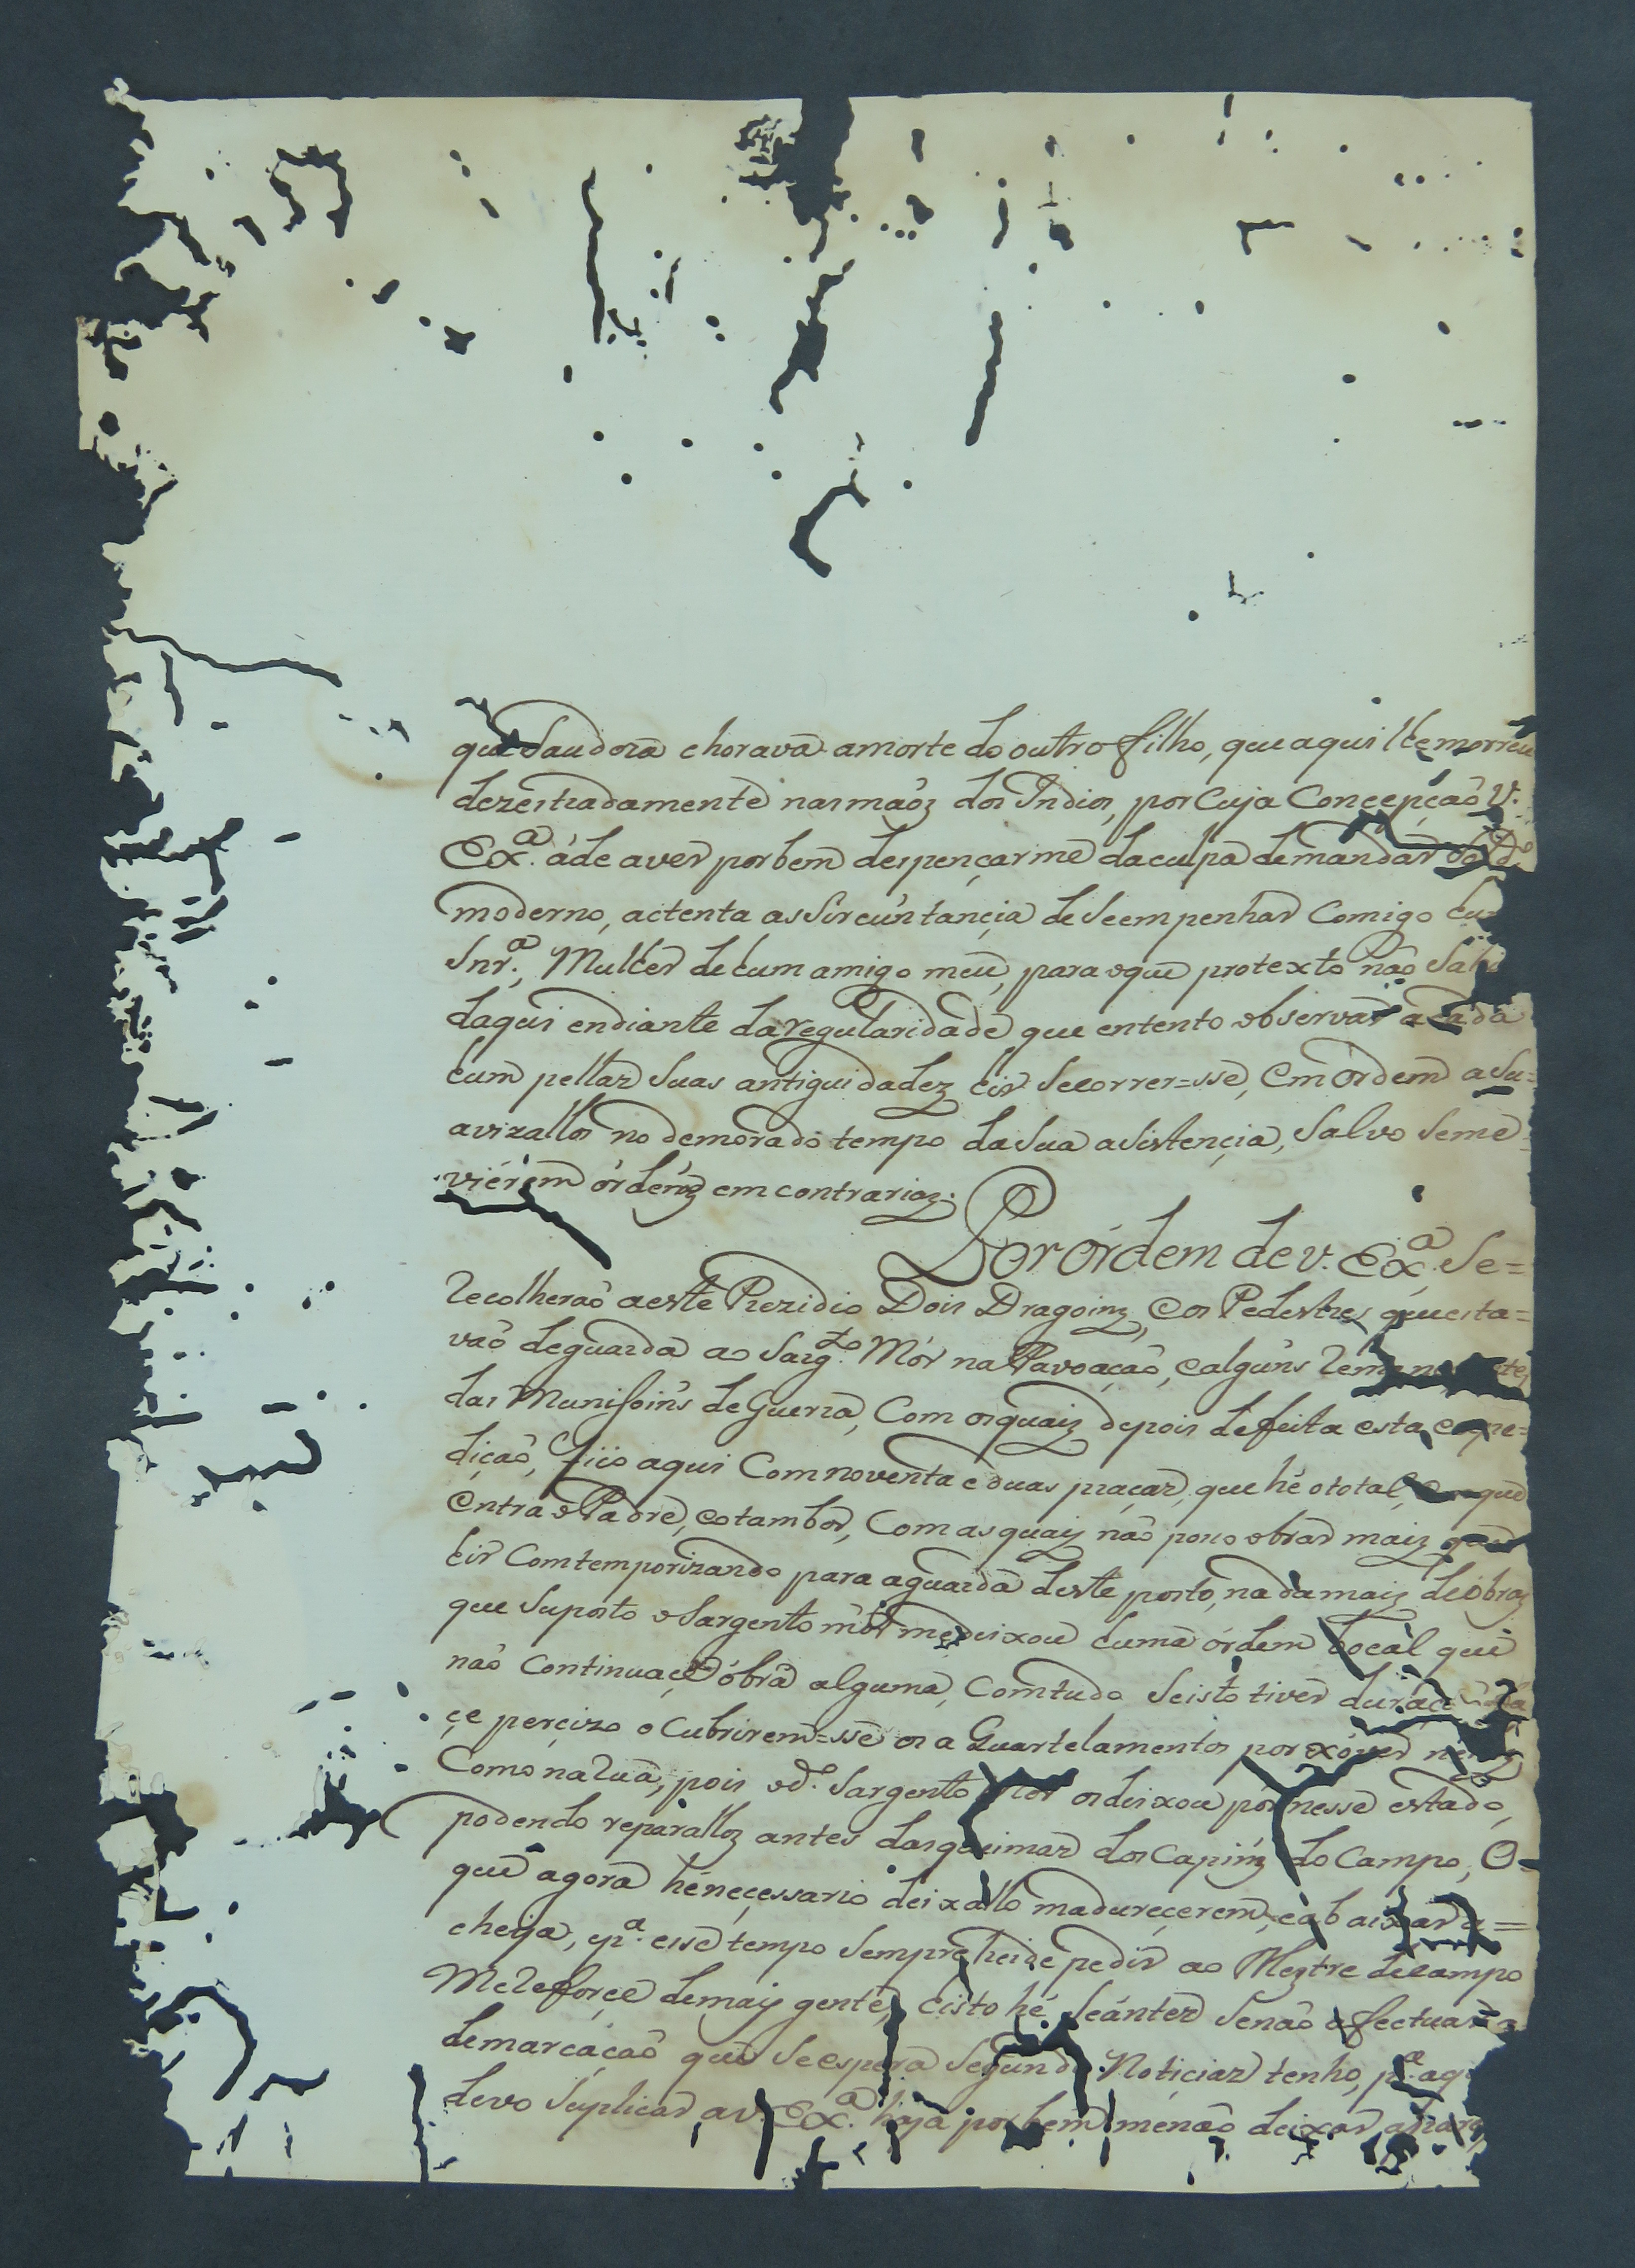 que Saudoza chorava amorte do outro filho, que aqui lhe morreu
dezestradamente nas maõz dos Indios, por Cuja Concepçaõ V.
Ex.ª áde aver por bem despençarme da culpa demandar
moderno, actenta as Sircúntançia de Seempenhar Comigo
Snr.ª, Mulher dehum amigo meu, para oque protexto naõ
daqui endiante da regularidade que entento observar a cada
hum pellaz Suas antiguidadez hir Secorrer=sse, Em órdem a Su=
avizallos no demorado tempo da Sua asistençia, Salvo Seme
viérem órdénz em contrariaz.
Por órdem de v. Ex.ª Se=
Recolheraõ aeste Prezidio Dois Dragoinz, Eos Pedestres que esta=
vaõ deguarda ao Sarg.to Mór na Pavoaçaõ, ealgúns
das Munisoins de Guerra, Com osquaiz depois defeita esta
diçaõ, fiio aqui Com noventa e duas praçaz, que hé ototal, que
Entra o Padre, eo tambor, Com as quaiz naõ poso obrar maiz que
hir Comtemporizando para aguarda deste posto, nada maiz deobraz
que Suposto o Sargento mór me deixou huma órdem bocál que
naõ Continuaçe óbra alguma, Comtudo Seisto tiver
çe perçizo o Cubrirem=sse os a Quartelamentos por
Como na Rua, pois od.º Sargento Mor osdeixou por nesse estado,
podendo reparalloz antes dasqueimaz dos Capiñz do Campo, O=
que agora hé neçessario deixallo madureçerem, eabaixar a=
cheya, ep.ª esse tempo Sempre heide pedir ao Meztre decampo
MeRefoṛce demaiz gente, Eisto hé Seántez Senaõ afectuar a
demarcáçaõ que Seespera Segundo Notiçiaz tenho, p.ª
devo Suplicar av. Ex.ª haja por bem menaõ deixar